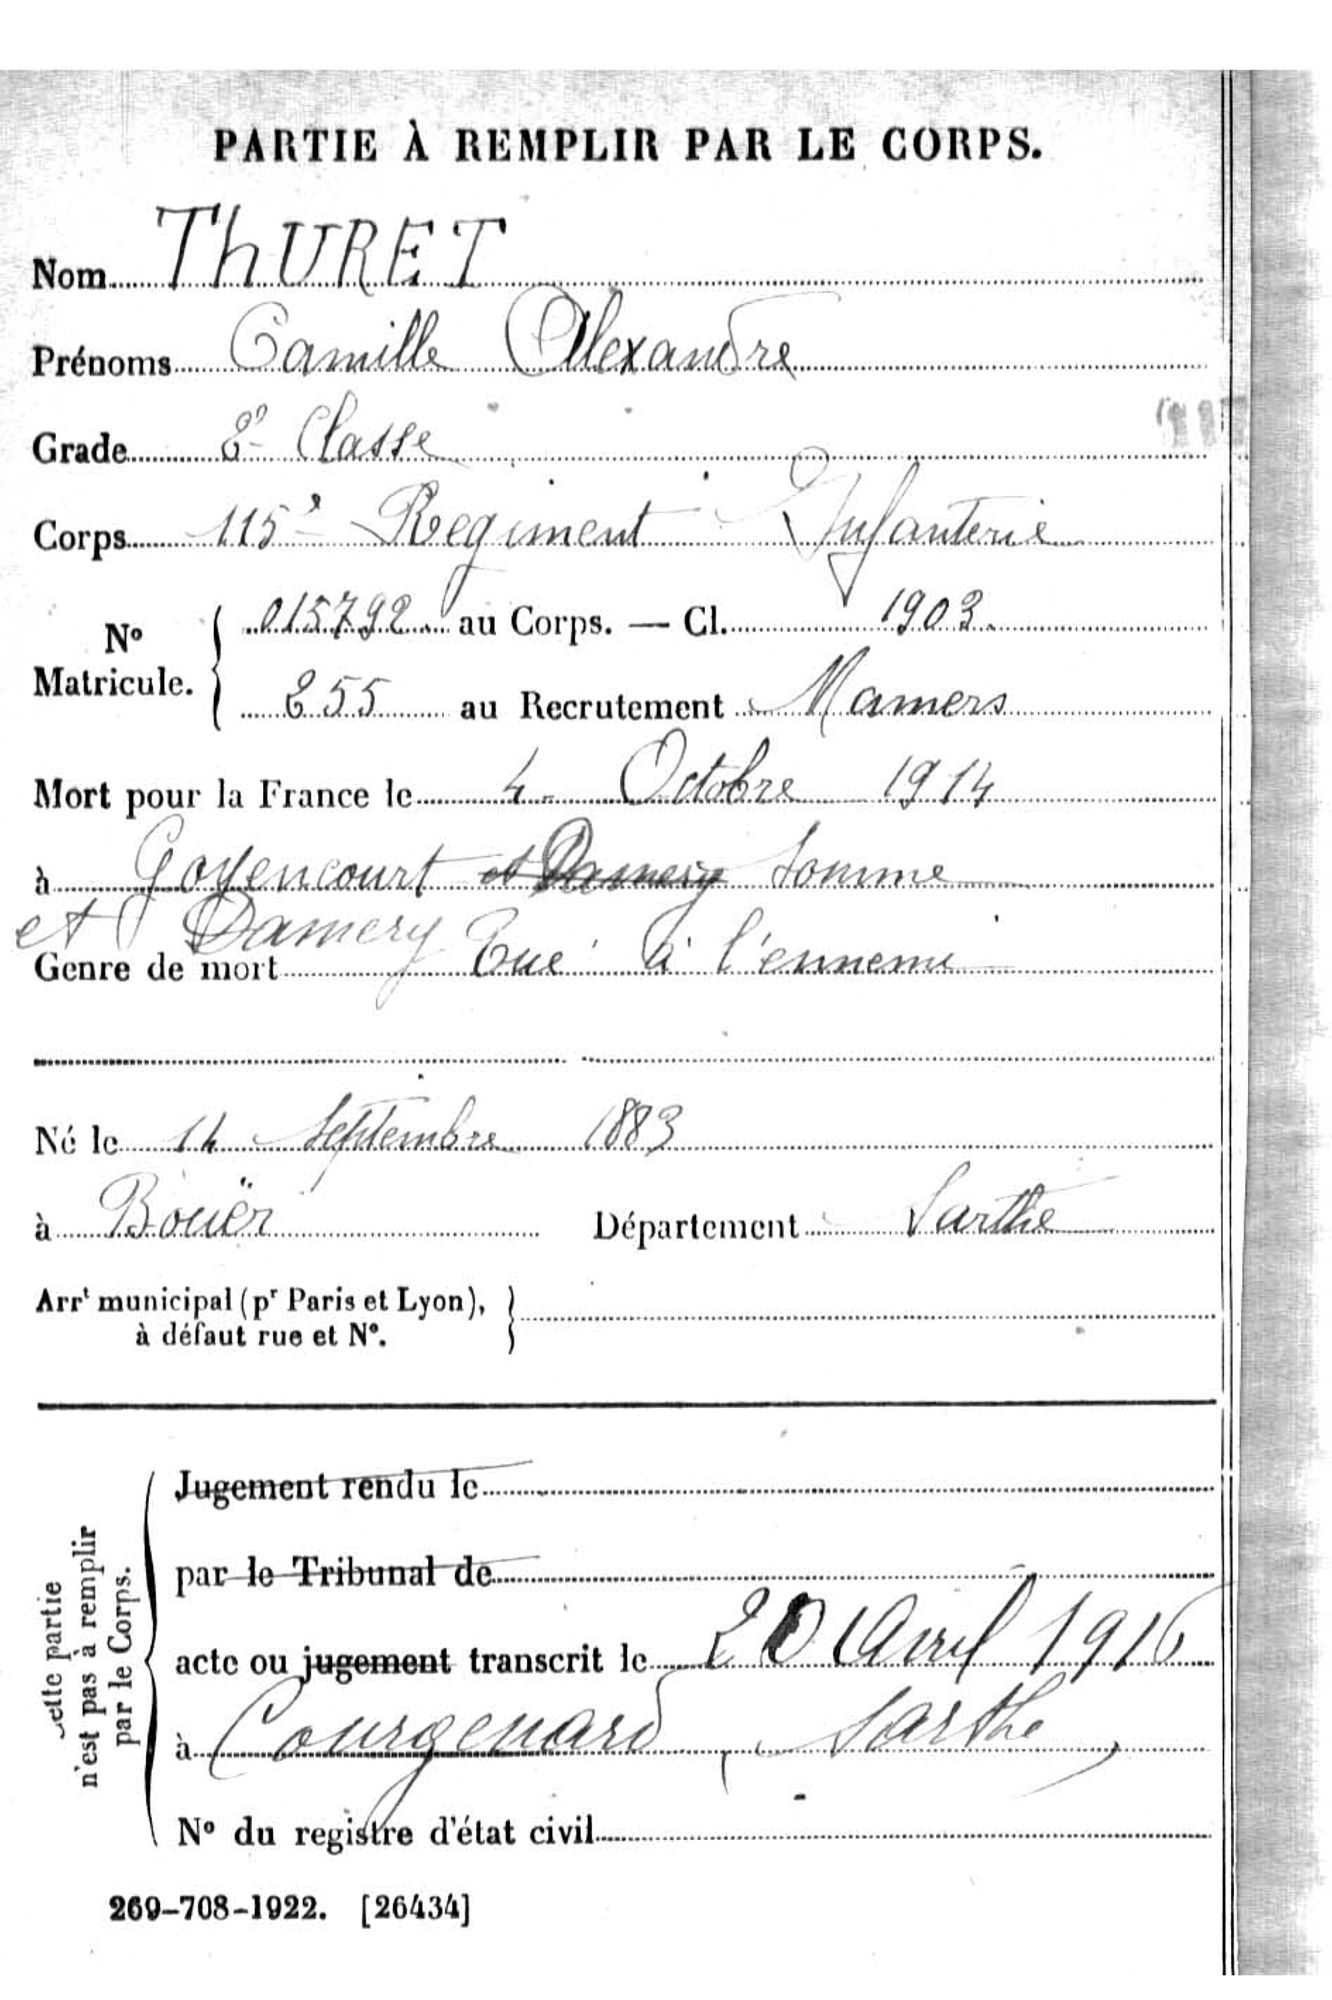 PARTIE À REMPLIR PAR LE CORPS.
Nom ThURET
Prénoms Camille Alexandre
Grade 2e Classe
Corps 115e Régiment Infanterie
No Matricule. 015792 au Corps. — Cl. 1903.
255 au Recrutement Mamers
Mort pour la France le 4 Octobre 1914
à Goyencourt et Damery Somme
et Damery
Genre de mort Tué à l'ennemi
Né le 14 Septembre 1883
à Bouër Département Sarthe
Arrt municipal (pr Paris et Lyon),
à défaut rue et No.
Cette partie
n'est pas à remplir
par le Corps.
Jugement rendu le
par le Tribunal de
acte ou jugement transcrit le 20 Avril 1916
à Courgenard, Sarthe
No du registre d'état civil
269-708-1922. [26434]